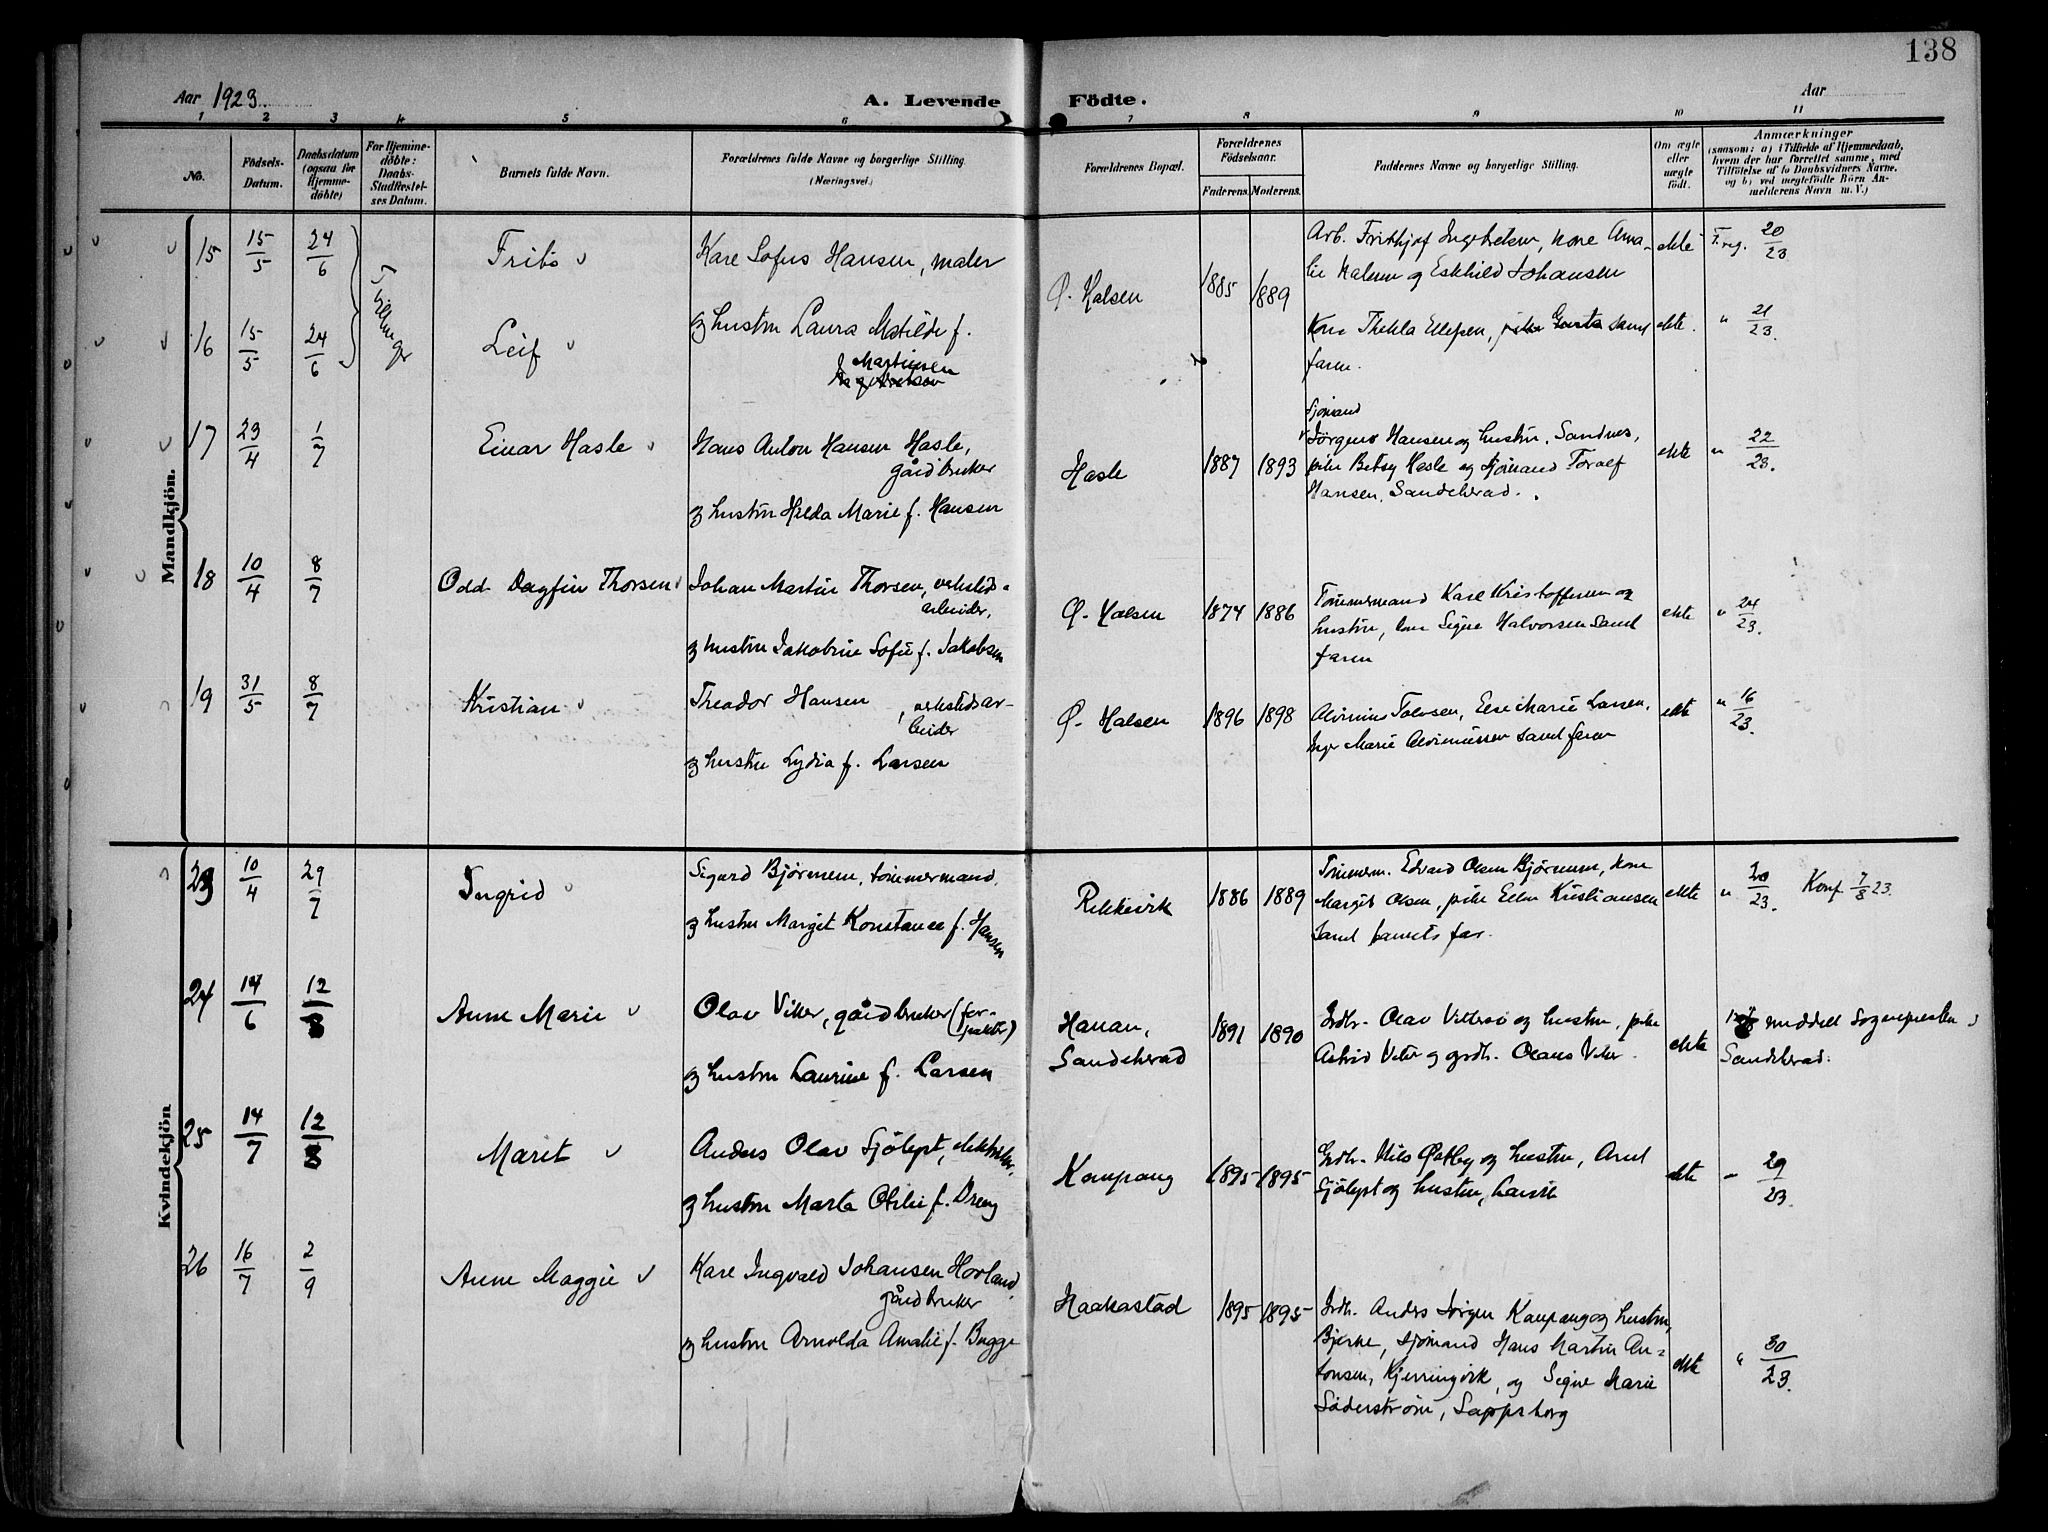 138
Aar 1923
A. Levende Födte.
Aar
1 2 3 4 5 6 7 8 9 10 11
No.
Födsels-Datum.
Daabsdatum (ogsaa for Hjemme-döbte)
For Hjemme-döbte: Daabs-Stadfæstel-ses Datum.
Barnets fulde Navn.
Forældrenes fulde Navne og borgerlige Stilling.
(Næringsvei.)
Forældrenes Bopæl.
Forældrenes Födselsaar.
Faderens. Moderens.
Faddernes Navne og borgerlige Stilling.
Om ægte eller uægte födt.
Anmærkninger
(saasom: a) i Tilfælde af Hjemmedaab,
hvem der har forrettet samme, med
Tilföielse af to Daabsvidners Navne.
og b) ved uægtefödte Börn An-
melderens Navn m. V.)
Mandkjön.
15 15/5 24/6 Tvillinger
Karl Sofus Hansen, maler
Ø. Halsen 1885 1889
Arb. Frithjof Ingebretsen, kone Ama-
lie Halsen og Eskhild Johansen
ekte F.reg. 20/23
16 15/5 24/6 Leif
og hustru Laura Matilde f.
Martinsen
Kone Thekla Ellefsen, samt
faren.
ekte. " 21/23.
17 23/4 1/7 Einar Hasle
Hans Anton Hansen Hasle,
gårdbruker
og hustru Hilda Marie f. Hansen
Hasle 1887 1893
sjömand
Jörgen Hansen og hustru, Sandnes,
pike Betsy Hasle og sjömand Toralf
Hansen, Sandeherad.
ekte " 22/23.
18 10/4 8/7 Odd Dagfin Thorsen
Johan Martin Thorsen, verksteds-
arbeider,
og hustru Jakobine Sofie f. Jakobsen
Ø. Halsen 1874 1886
Tömmermand Karl Kristoffersen og
hustru, Signe Halvorsen samt
faren
ekte " 24/23.
19 31/5 8/7 Kristian
Theodor Hansen, verkstedsar-
beider
og hustru Lydia f. Larsen
Ø. Halsen 1896 1898
Tolvsen, Else Marie Larsen,
Inga Marie samt faren
ekte " 16/23.
Kvindekjön
23 10/4 29/7 Ingrid
Sigurd Björnsen, tömmermand,
og hustru Margit Konstance f. Hansen
Rekkevik 1886 1889
Tömmerm. Edvard Olsen Björnsen, kone
Margit Olsen, pike Ellen Kristiansen
samt barnets far.
ekte " 23. Konf. 7/8 23.
24 14/6 12/8 Anne Marie
Olav Vitter, gårdbruker (for-
pakter)
og hustru Laurine f. Larsen
Hauan,
Sandeherad
1891 1890
Grdbr. Olav Vittersö og hustru, pike
Astrid Viter og grdbr. Olaus Viter.
ekte
meddelt Sognepresten i
Sandeherad.
25 14/7 12/8 Marit
Anders Olav Sjölyst, elektriker,
og hustru Marta Otilie f. Dreng
Kaupang 1895 1895
Grdbr. Nils Østby og hustru, Arnt
Sjölyst og hustru, Larvik
ekte - 29/23.
26 16/7 2/9 Anne Maggie
Karl Ingvald Johansen Hovland,
gårdbruker
og hustru Arnolda Amalie f. Bugge
Haakastad 1895 1895
Grdbr. Anders Jörgen Kaupang og hustru,
Bjerke, sjömand Hans Martin An-
tonsen, Kjerringvik, og Signe Marie
Söderström, Sarpsborg
ekte " 30/23.